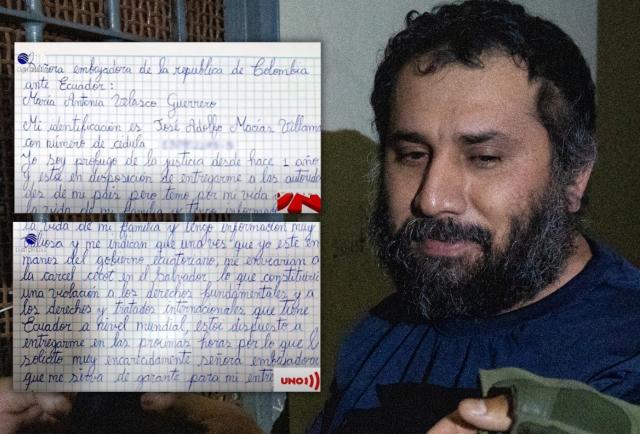 Señora embajadora de la republica de Colombia
ante Ecuador:
Maria Antonia Velasco Guerrero
Mi identificación es José Adolfo Macías Villama
con numero de cédula
Yo soy profugo de la justicia desde hace 1 año
Y esta en disposición de entregarme a las autorida
des de mi país pero temo por mi vida
la vida de mi familia
la vida de mi familia y tengo información muy
liosa y me indican que una vez que yo este en
manos del gobierno ecuatoriano, me enviarian a
la carcel cecot en el Salvador, lo que constituiri
una violación a los derechos fundamentales y a
los derechos y tratados internacionales que tiene
Ecuador a nivel mundial, estoi dispuesto a
entregarme en las proximas horas por lo que l
solicito muy encarecidamente señora embajadora
que me sirva de garante para mi entre
UNO